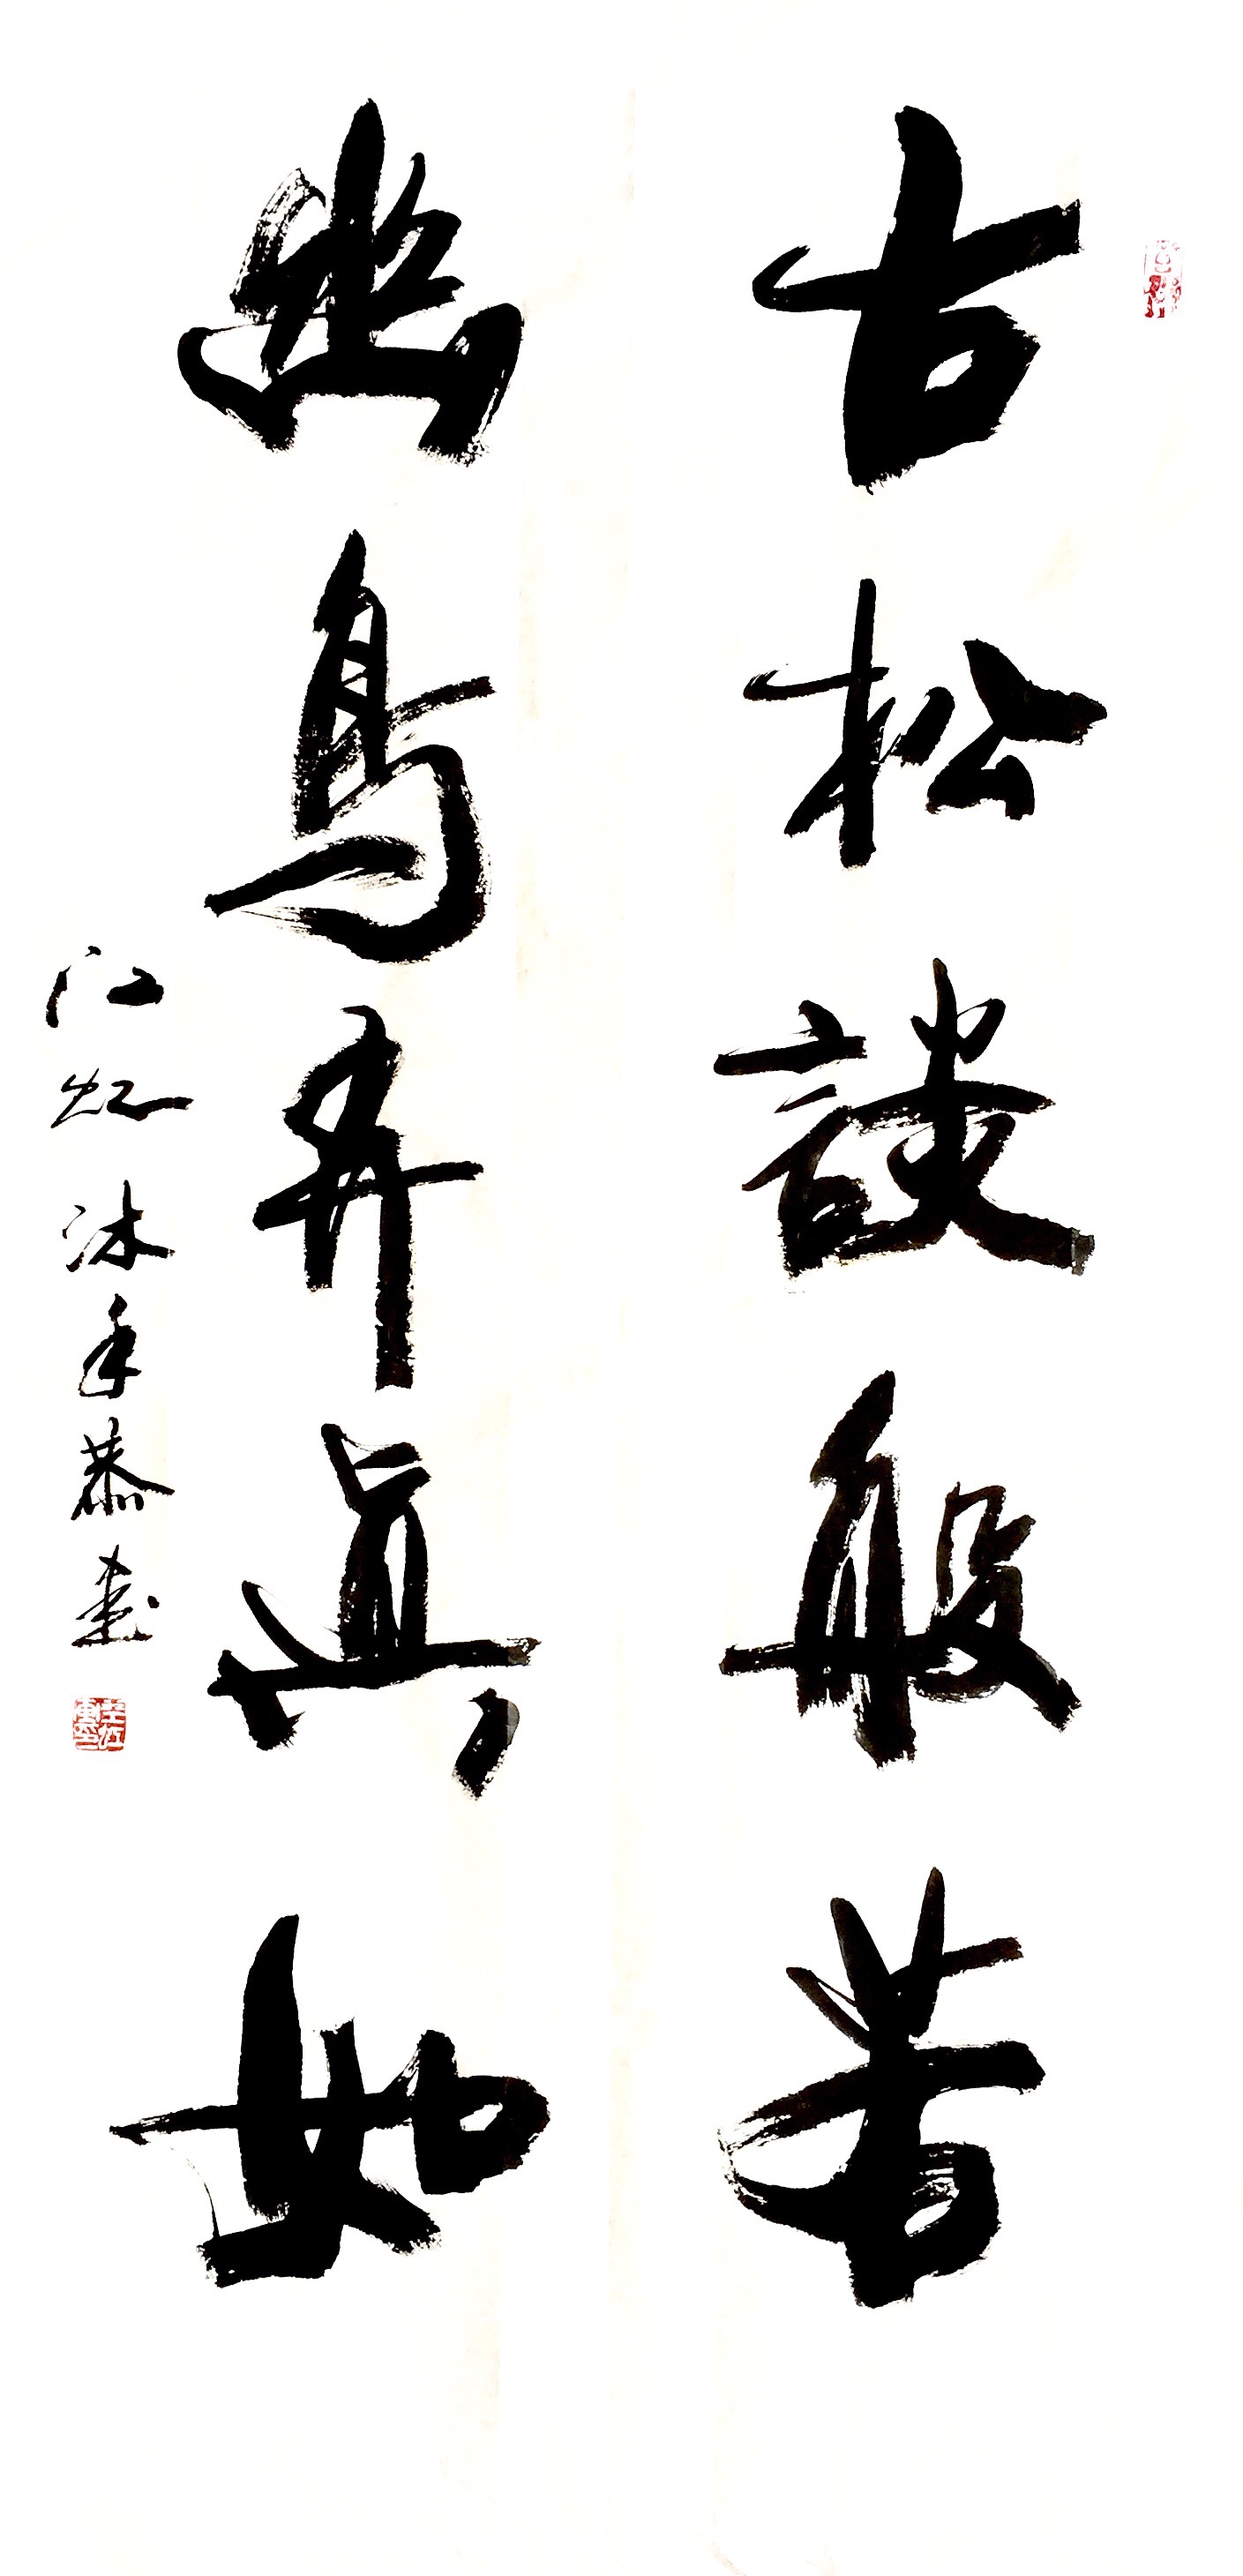 古松談般若
幽鳥弄真如
江虹沐手恭書